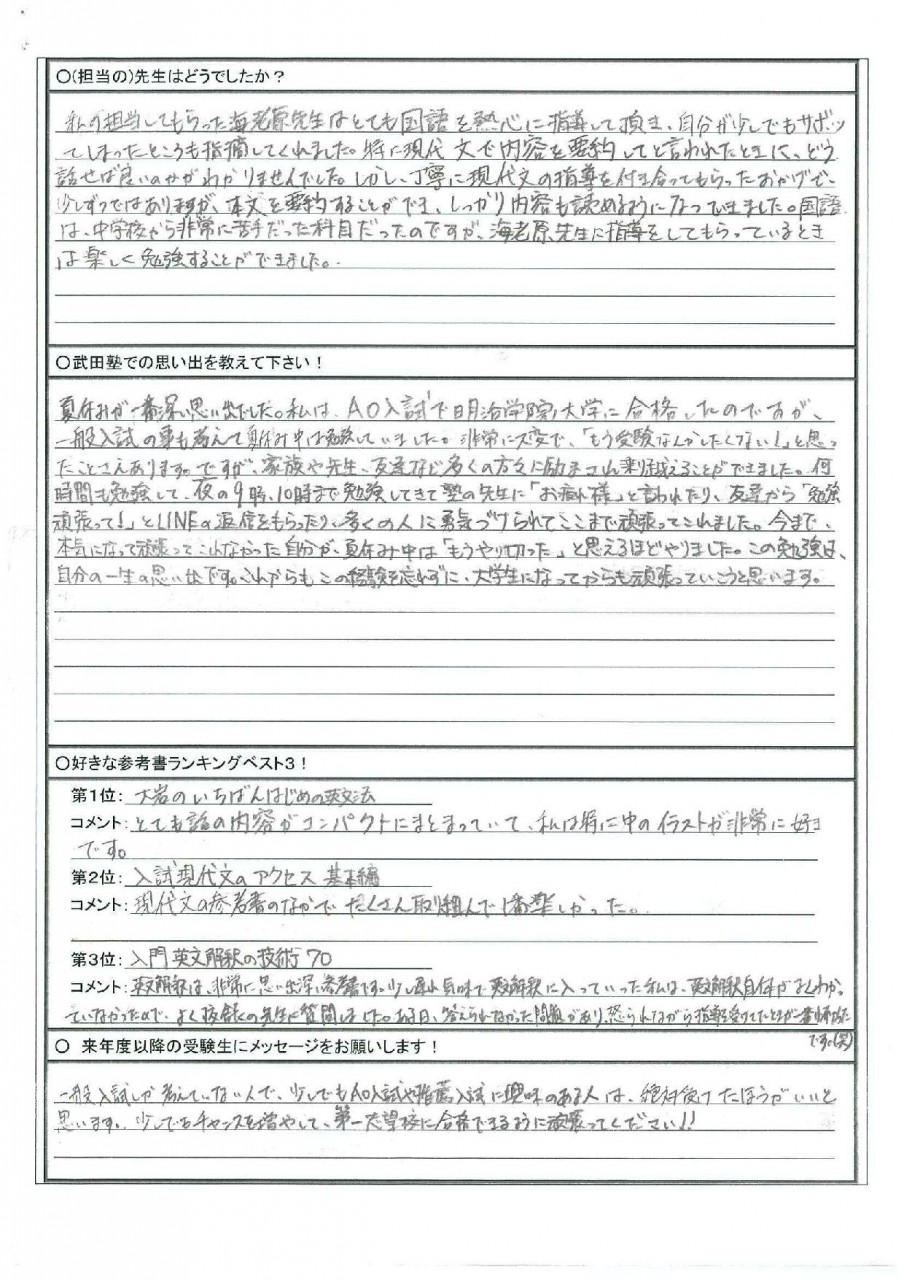 ○(担当の)先生はどうでしたか？
私の担当してもらった海老原先生はとても国語を熱心に指導して頂き、自分が少しでもサボッ
てしまったところも指摘してくれました。特に現代文で内容を要約してと言われたときに、どう
話せば良いのかがわかりませんでした。しかし、丁寧に現代文の指導を付き合ってもらったおかげで、
少しずつではありますが、本文を要約することができ、しっかり内容も読めるようになってきました。国語
は、中学校から非常に苦手だった科目だったのですが、海老原先生に指導をしてもらっているとき
は楽しく勉強することができました。
○武田塾での思い出を教えて下さい！
夏休みが一番深い思い出でした。私は、AO入試で明治学院大学に合格したのですが、
一般入試の事も考えて夏休み中は勉強していましたが非常に大変で、「もう受験なんかしたくない！」と思っ
たことさえあります。ですが、家族や先生、友達など多くの方々に励まされ乗り越えることができました。何
時間も勉強して、夜の9時、10時まで勉強してきて塾の先生に「お疲れ様」と言われたり、友達から「勉強
頑張って！」とLINEの返信をもらったり、多くの人に勇気づけられてここまで頑張ってこれました。今まで、
本気になって頑張ってこれなかった自分が、夏休み中は「もうやり切った」と思えるほどやりました。この勉強は、
自分の一生の思い出です。これからもこの経験を忘れずに、大学生になってからも頑張っていこうと思います。
○好きな参考書ランキングベスト3！
第1位： 大岩のいちばんはじめの英文法
コメント：とても話の内容がコンパクトにまとまっていて、私は特に中のイラストが非常に好き
です。
第2位： 入試現代文のアクセス 基本編
コメント：現代文の参考書のなかでたくさん取り組んで1番楽しかった。
第3位： 入門英文解釈の技術70
コメント：英文解釈は、非常に思い出深い参考書です。少し遅れ気味で英文解釈に入っていった私は、英文解釈自体がよくわかっ
ていなかったので、よく校舎の先生に質問しました。ある日、答えられなかった問題があり、怒られながら指導を受けてたときが一番
です。(笑)
○ 来年度以降の受験生にメッセージをお願いします！
一般入試しか考えていない人で、少しでもAO入試や推薦入試に興味のある人は、絶対受けたほうがいいと
思います。少しでもチャンスを増やして、第一志望校に合格できるように頑張ってください！！